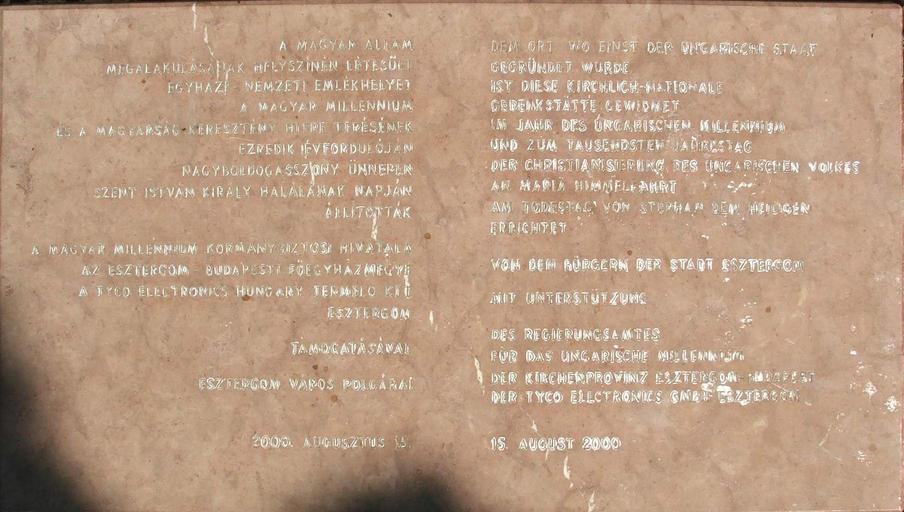 A MAGYAR ÁLLAM
MEGALAKULÁSÁNAK HELYSZÍNÉN LÉTESÜLT
EGYHÁZI - NEMZETI EMLÉKHELYET
A MAGYAR MILLENNIUM
ÉS A MAGYARSÁG KERESZTÉNY HITRE TÉRÉSÉNEK
EZREDIK ÉVFORDULÓJÁN
NAGYBOLDOGASSZONY ÜNNEPÉN
SZENT ISTVÁN KIRÁLY HALÁLÁNAK NAPJÁN
ÁLLÍTOTTÁK
A MAGYAR MILLENNIUM KORMÁNYBIZTOSI HIVATALA
AZ ESZTERGOM - BUDAPESTI FŐEGYHÁZMEGYE
A TYCO ELECTRONICS HUNGARY TERMELŐ KFT
ESZTERGOM
TÁMOGATÁSÁVAL
ESZTERGOM VÁROS POLGÁRAI
2000. AUGUSZTUS 15.
DEM ORT, WO EINST DER UNGARISCHE STAAT
GEGRÜNDET WURDE
IST DIESE KIRCHLICH-NATIONALE
GEDENKSTÄTTE GEWIDMET
IM JAHR DES UNGARISCHEN MILLENNIUM
UND ZUM TAUSENDSTEN JAHRESTAG
DER CHRISTIANISIERUNG DES UNGARISCHEN VOLKES
AN MARIÄ HIMMELFAHRT
AM TODESTAG VON STEPHAN DEM HEILIGEN
ERRICHTET
VON DEN BÜRGERN DER STADT ESZTERGOM
MIT UNTERSTÜTZUNG
DES REGIERUNGSAMTES
FÜR DAS UNGARISCHE MILLENNIUM
DER KIRCHENPROVINZ ESZTERGOM-BUDAPEST
DER TYCO ELECTRONICS GMBH ESZTERGOM
15. AUGUST 2000